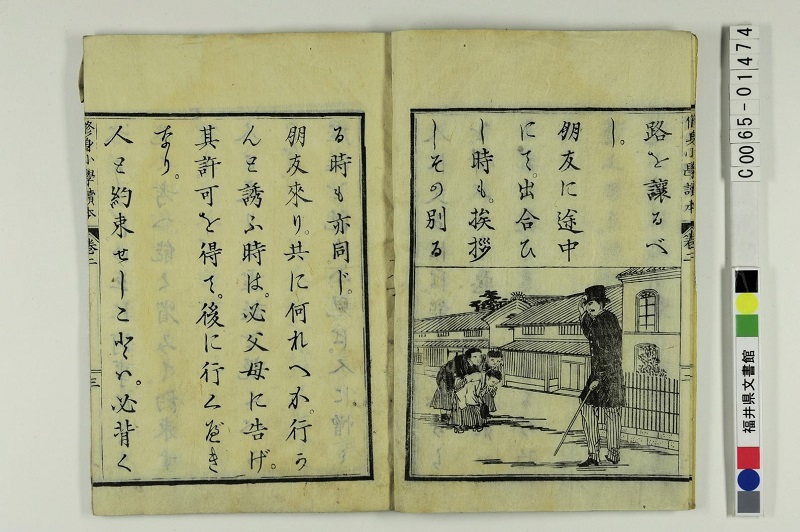 路を讓るべ
し。
朋友に途中
にて出合ひ
し時も。挨拶
しその別る
る時も亦同じ。
朋友來り。共に何れへか行か
んと誘ふ時は。必父母に告げ。
其許可を得て。後に行くべき
なり。
人と約束せしことは。必背く
修身小學讀本 巻二
二
修身小學讀本 巻二
三
C0065-01474
福井県文書館